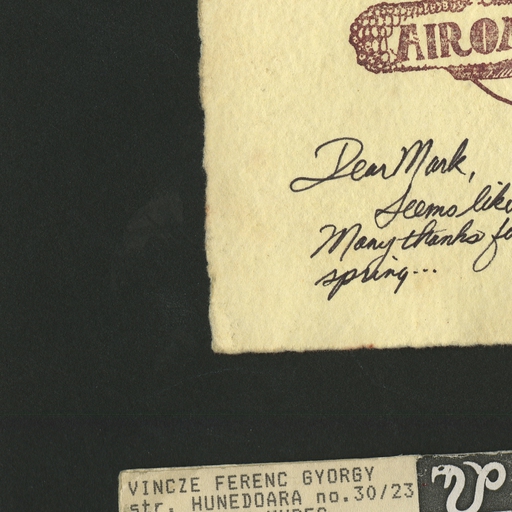 AIRO
Dear Mark,
Seems like
Many thanks fo
spring...
VINCZE FERENC GYORGY
str. HUNEDOARA no.30/23